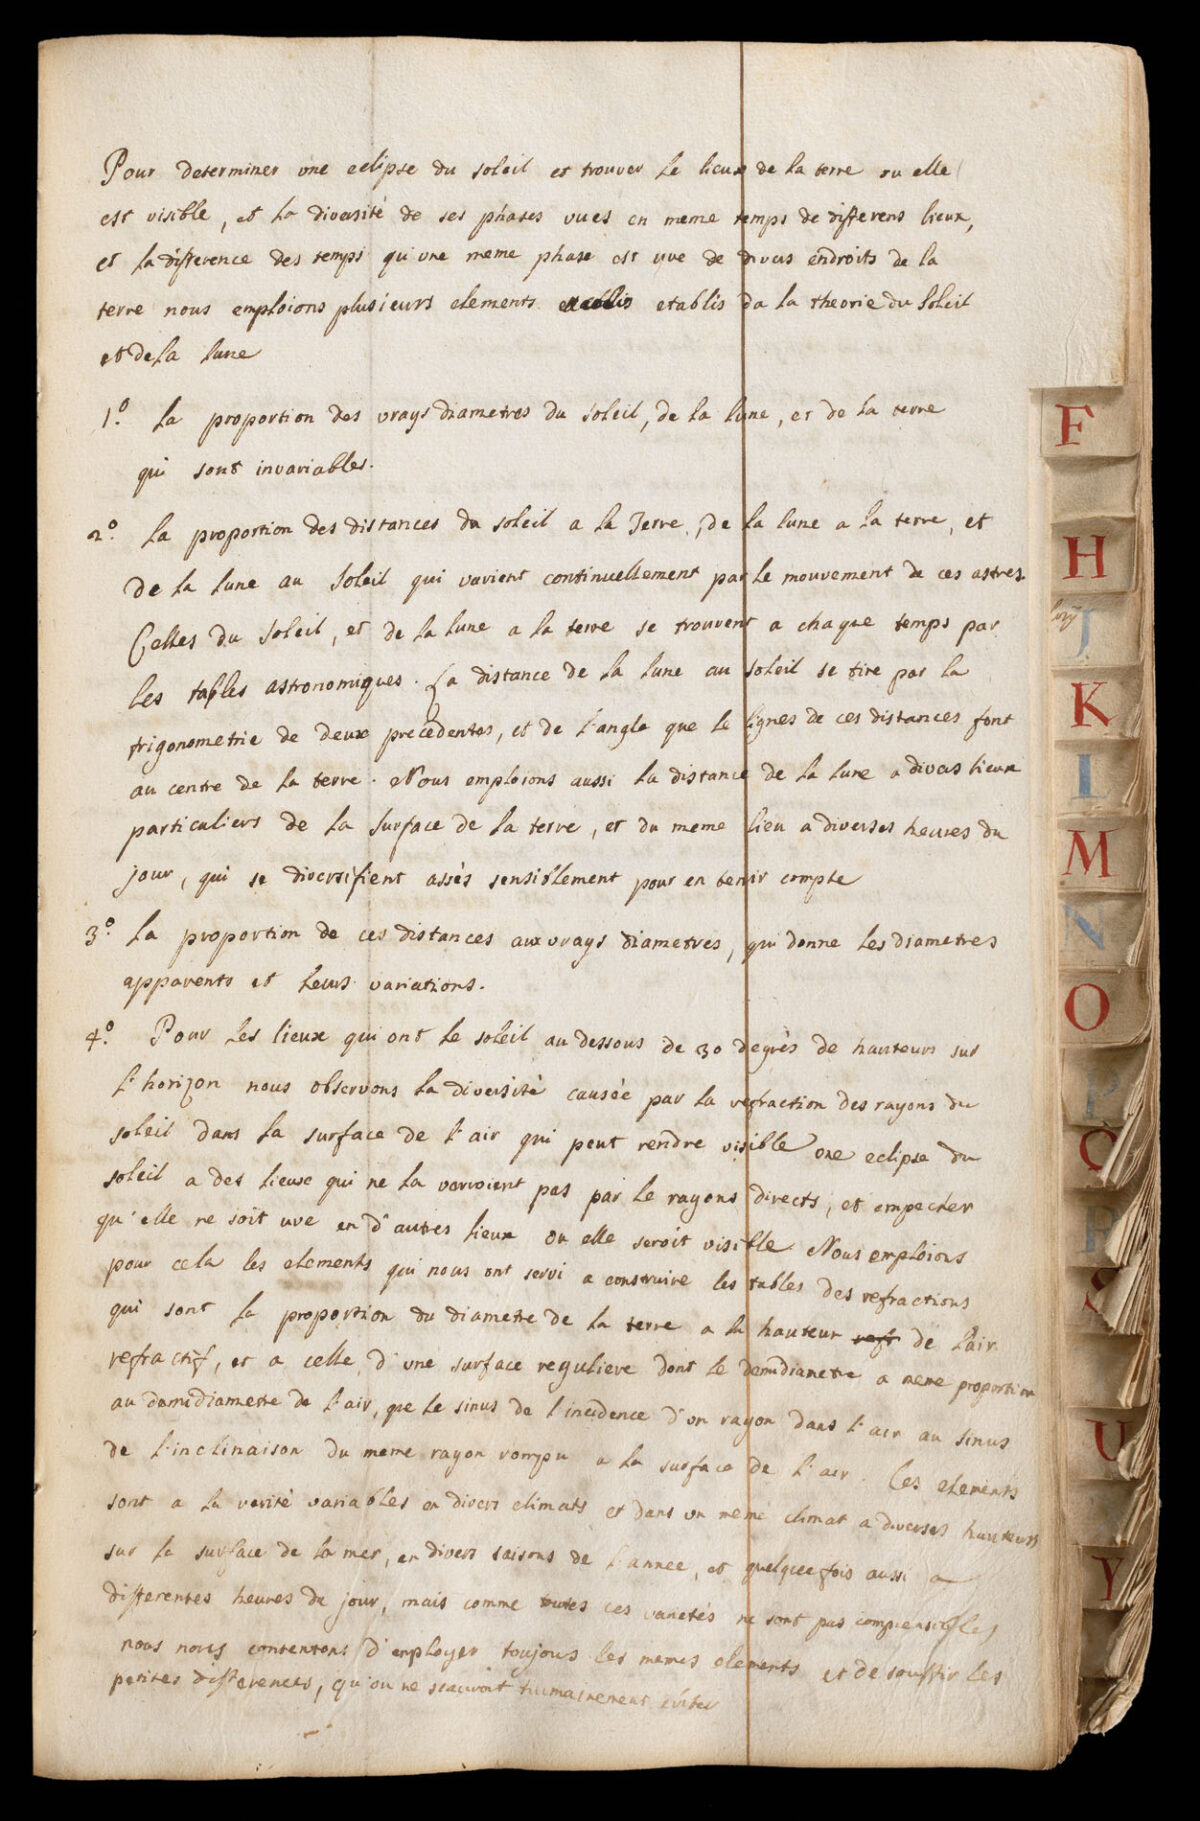 Pour determiner une eclipse du soleil et trouver le lieux de la terre ou elle
est visible, et la diversité de ses phases vues en meme temps de differens lieux,
et la difference des temps qu'une meme phase est vue de divers endroits de la
terre nous emploions plusieurs elements etablis da la theorie du Soleil
et de la lune
1.o la proportion des vrays diametres du soleil, de la lune, et de la terre
qui sont invariables.
2.o la proportion des distances du soleil a la Terre, de la lune a la terre, et
de la lune au Soleil qui varient continuellement par le mouvement de ces astres.
Celles du Soleil, et de la lune a la terre se trouvent a chaque temps par
les tables astronomiques. La distance de la lune au soleil se tire par la
trigonometrie de deux precedentes, et de l'angle que le lignes de ces distances font
au centre de la terre. Nous emploions aussi la distance de la lune a divers lieux
particuliers de la surface de la terre, et du meme lieu a diverses heures du
jour, qui se diversifient assés sensiblement pour en tenir compte
3.o la proportion de ces distances aux vrays diametres, qui donne les diametres
apparents et leurs variations.
4.o Pour les lieux qui ont le soleil au dessous de 30 degrès de hauteurs sur
l'horizon nous observons la diversité causée par la refraction des rayons du
soleil dans la surface de l'air qui peut rendre visible une eclipse du
soleil a des lieux qui ne la verroient pas par le rayons directs, et empecher
qu'elle ne soit vue en d'autres lieux ou elle seroit visible. Nous emploions
pour cela les elements qui nous ont servi a construire les tables des refractions
qui sont la proportion du diametre de la terre a la hauteur refr de l'air
refractif, et a celle d'une surface reguliere dont le demidiametre a meme proportion
au demidiametre de l'air, que le sinus de l'incidence d'un rayon dans l'air au sinus
de l'inclinaison du meme rayon rompu a la surface de l'air. Ces elements
sont a la verité variables en divers climats et dans un meme climat a diverses hauteurs
sur la surface de la mer, en divers saisons de l'année, et quelquefois aussi a
differentes heures du jour, mais comme toutes ces varietés ne sont pas comprensibles
nous nous contentons d'employer toujous les memes elements et de souffrir les
petites differences, qu'on ne scauroit humainement eviter
F
H
J
K
L
M
N
O
P
Q
R
S
U
Y